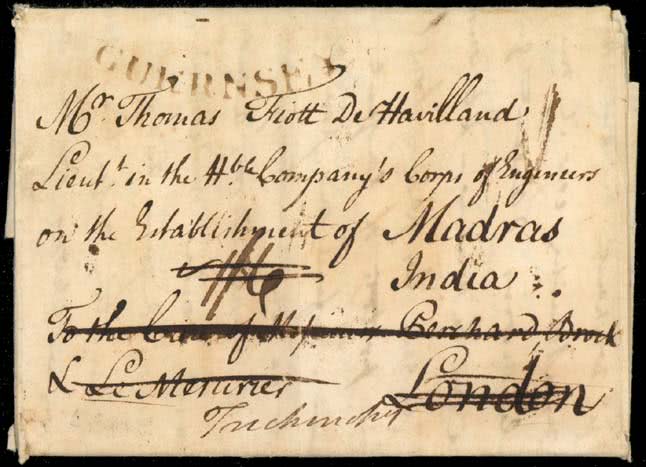 GUERNSEY
Mr. Thomas Fiott De Havilland
Lieut.t in the H.ble Company's Corps of Engineers
on the Establishment of Madras
India
To the Care of Messieurs Perchard, Brock
& Le Mesurier
London